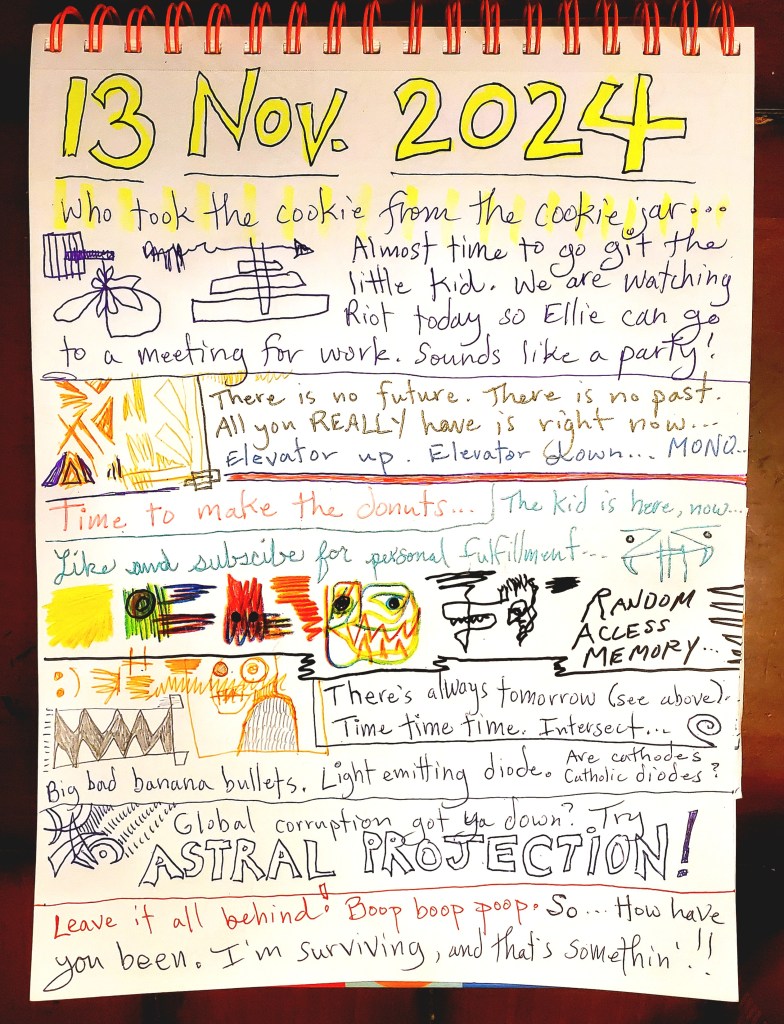 13 Nov. 2024
Who took the cookie from the cookie jar...
Almost time to go git the
little kid. We are watching
Riot today so Ellie can go
to a meeting for work. Sounds like a party!
There is no future. There is no past.
All you REALLY have is right now...
Elevator up. Elevator down... MONO..
Time to make the donuts... The kid is here, now...
Like and subscibe for personal fulfillment...
RANDOM
ACCESS
MEMORY...
:)
There's always tomorrow (see above).
Time time time. Intersect...
Big bad banana bullets. Light emitting diode. Are cathodes
Catholic diodes?
Global corruption got ya down? Try
ASTRAL PROJECTION!
Leave it all behind! Boop boop poop. So... How have
you been. I'm surviving, and that's somethin'!!